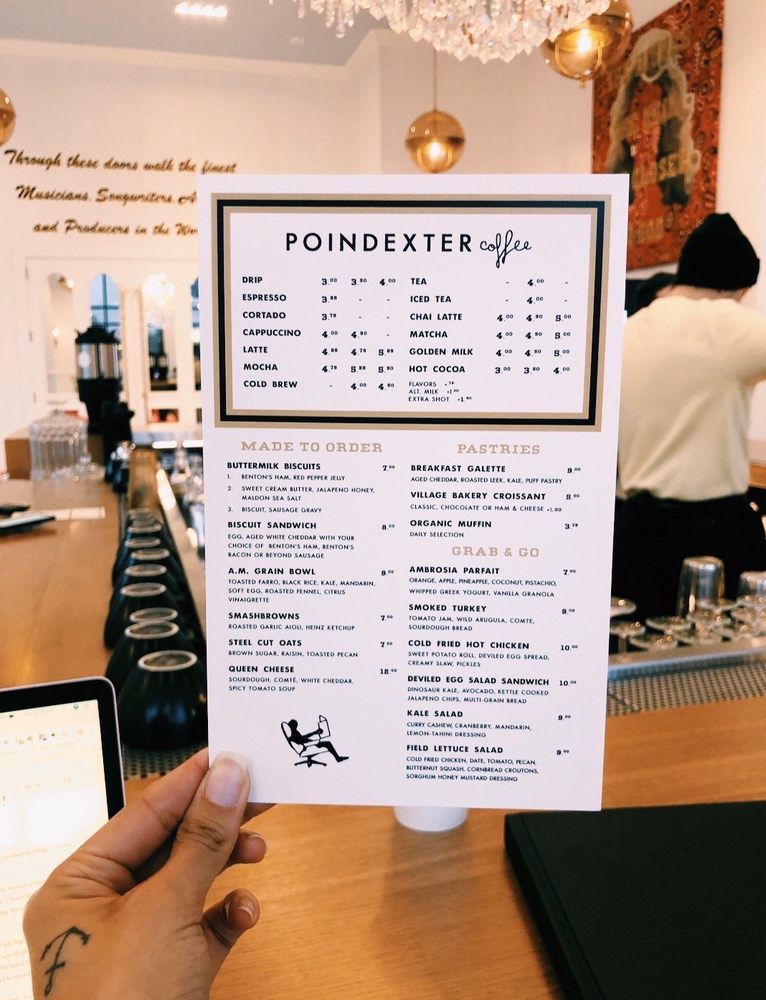 Through these doors walk the finest
Musicians, Songwriters A
and Producers in the Wor
POINDEXTER coffee
DRIP 3.00 3.50 4.00
ESPRESSO 3.25 - -
CORTADO 3.75 - -
CAPPUCCINO 4.00 4.50 -
LATTE 4.25 4.75 5.25
MOCHA 4.75 5.25 5.50
COLD BREW - 4.00 4.50
TEA - 4.00 -
ICED TEA - 4.00 -
CHAI LATTE 4.00 4.50 5.00
MATCHA 4.00 4.50 5.00
GOLDEN MILK 4.00 4.50 5.00
HOT COCOA 3.00 3.50 4.00
FLAVORS +.75
ALT. MILK +1.00
EXTRA SHOT +1.50
MADE TO ORDER
BUTTERMILK BISCUITS 7.00
1. BENTON'S HAM, RED PEPPER JELLY
2. SWEET CREAM BUTTER, JALAPENO HONEY,
MALDON SEA SALT
3. BISCUIT, SAUSAGE GRAVY
BISCUIT SANDWICH 8.00
EGG, AGED WHITE CHEDDAR WITH YOUR
CHOICE OF BENTON'S HAM, BENTON'S
BACON OR BEYOND SAUSAGE
A.M. GRAIN BOWL 9.00
TOASTED FARRO, BLACK RICE, KALE, MANDARIN,
SOFT EGG, ROASTED FENNEL, CITRUS
VINAIGRETTE
SMASHBROWNS 7.00
ROASTED GARLIC AIOLI, HEINZ KETCHUP
STEEL CUT OATS 7.00
BROWN SUGAR, RAISIN, TOASTED PECAN
QUEEN CHEESE 12.00
SOURDOUGH, COMTÉ, WHITE CHEDDAR,
SPICY TOMATO SOUP
PASTRIES
BREAKFAST GALETTE 9.00
AGED CHEDDAR, ROASTED LEEK, KALE, PUFF PASTRY
VILLAGE BAKERY CROISSANT 5.00
CLASSIC, CHOCOLATE OR HAM & CHEESE +1.00
ORGANIC MUFFIN 3.75
DAILY SELECTION
GRAB & GO
AMBROSIA PARFAIT 7.00
ORANGE, APPLE, PINEAPPLE, COCONUT, PISTACHIO,
WHIPPED GREEK YOGURT, VANILLA GRANOLA
SMOKED TURKEY 9.00
TOMATO JAM, WILD ARUGULA, COMTE,
SOURDOUGH BREAD
COLD FRIED HOT CHICKEN 10.00
SWEET POTATO ROLL, DEVILED EGG SPREAD,
CREAMY SLAW, PICKLES
DEVILED EGG SALAD SANDWICH 10.00
DINOSAUR KALE, AVOCADO, KETTLE COOKED
JALAPENO CHIPS, MULTI-GRAIN BREAD
KALE SALAD 9.00
CURRY CASHEW, CRANBERRY, MANDARIN,
LEMON-TAHINI DRESSING
FIELD LETTUCE SALAD 9.00
COLD FRIED CHICKEN, DATE, TOMATO, PECAN,
BUTTERNUT SQUASH, CORNBREAD CROUTONS,
SORGHUM HONEY MUSTARD DRESSING